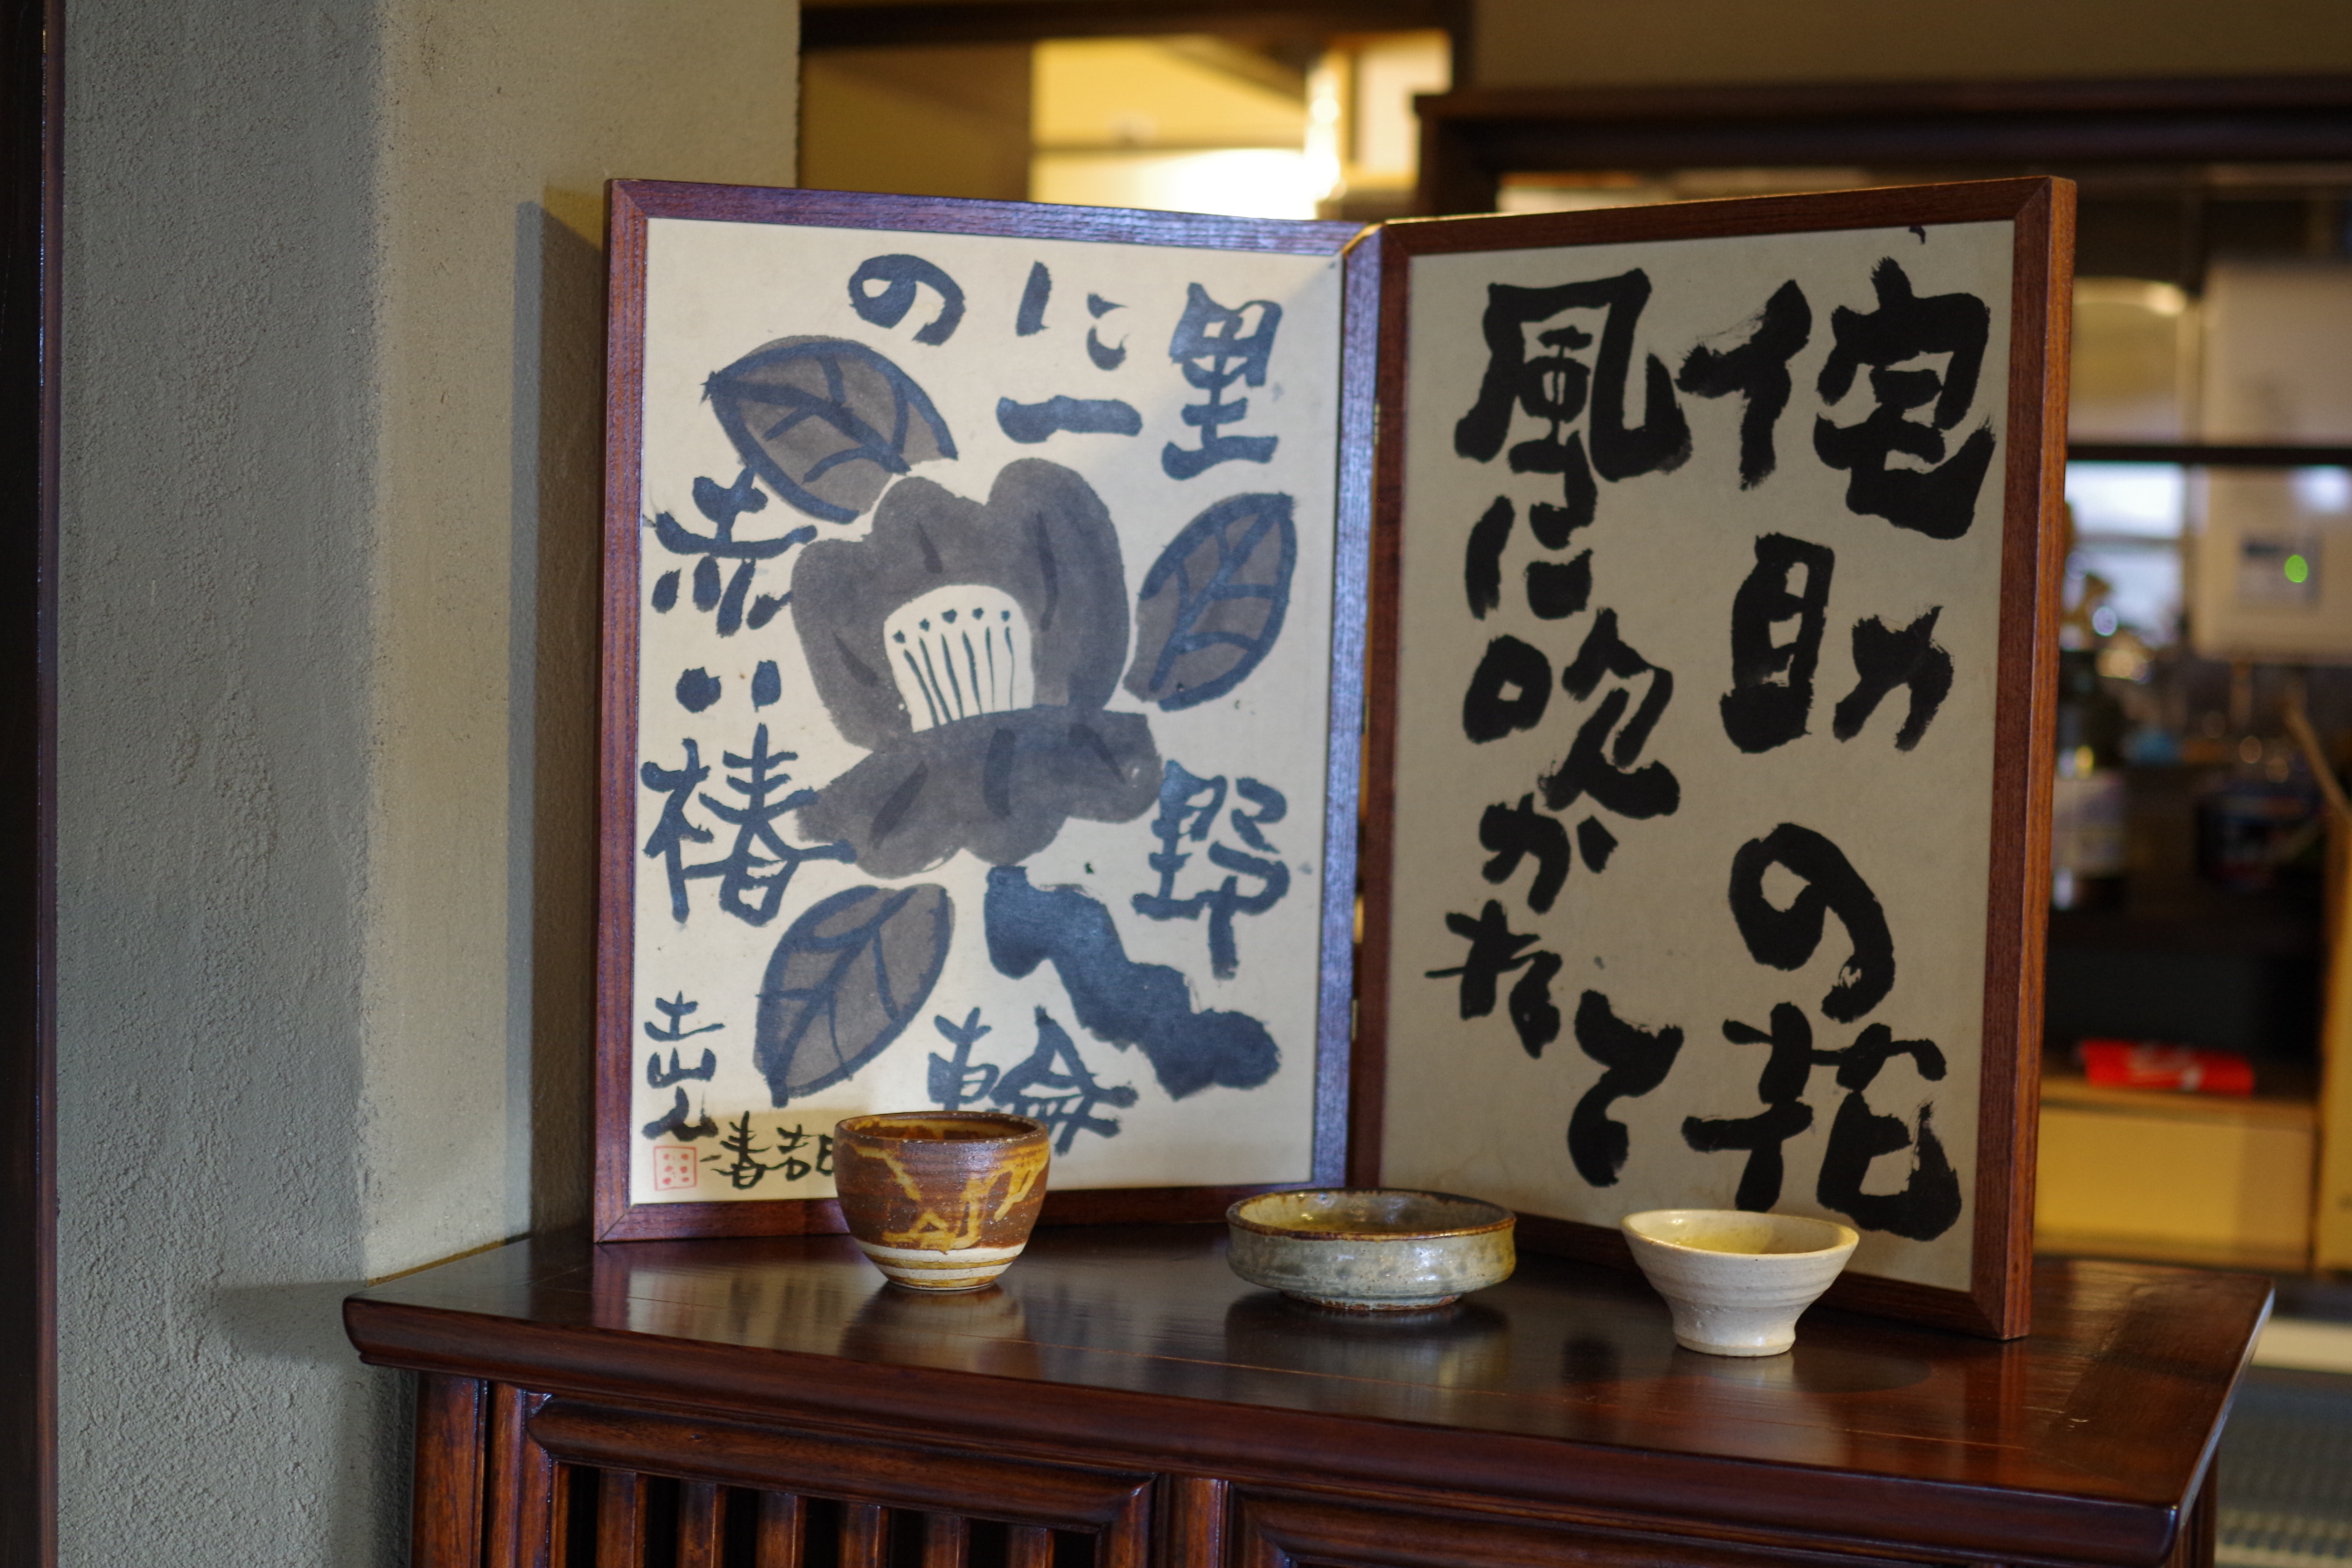 侘助の花
風に吹かれて
里野
に一輪
の
赤い椿
春吉日